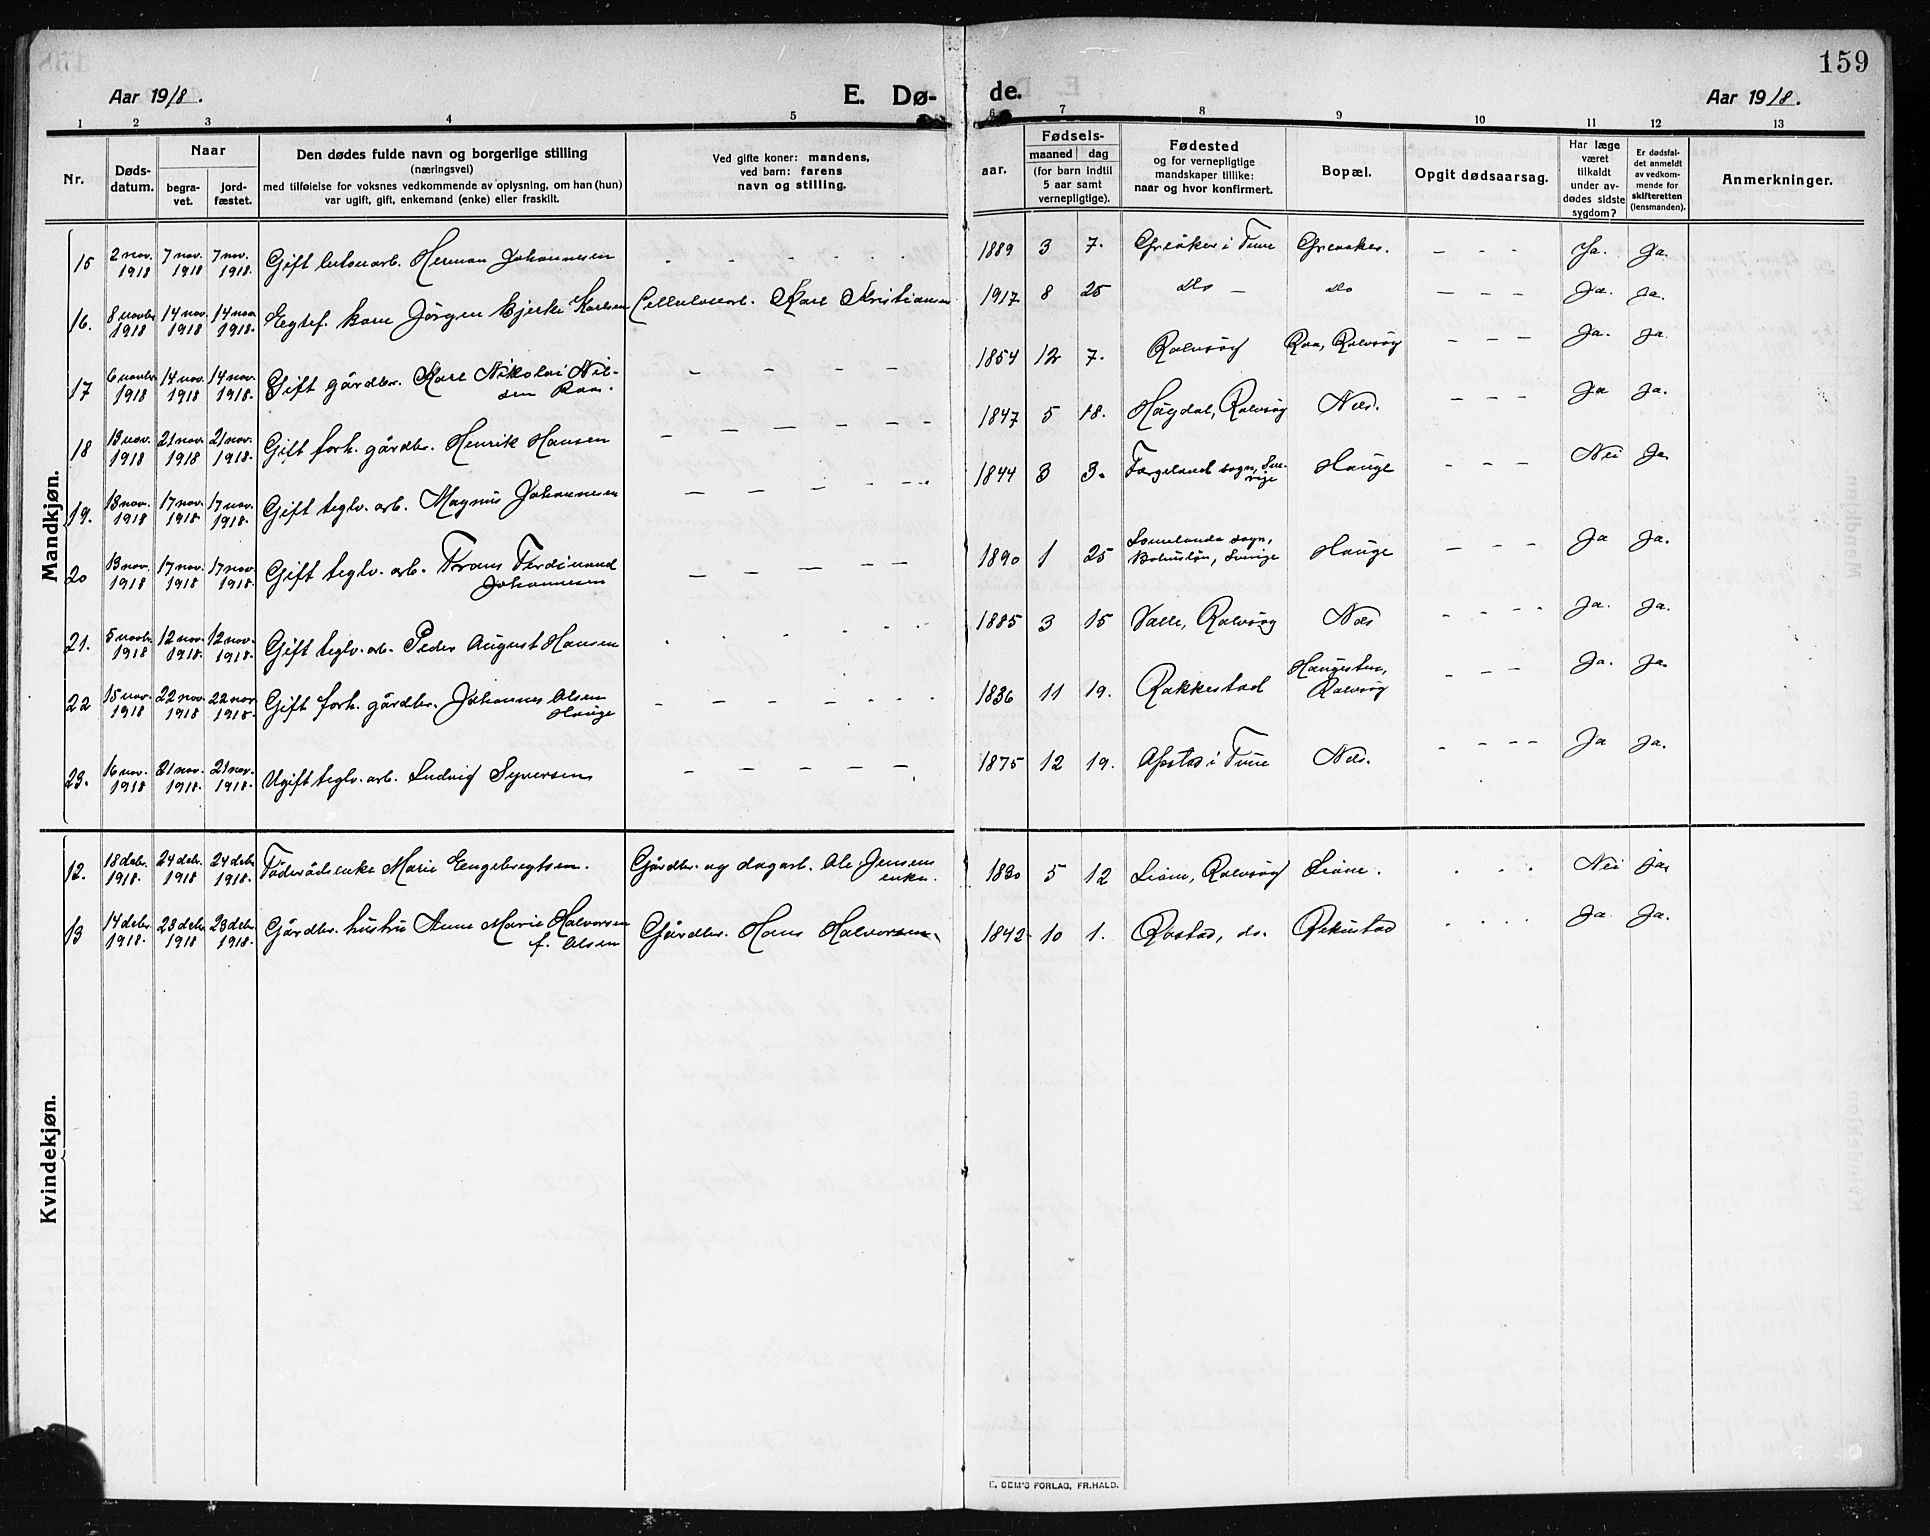 159
Aar 1918.
E. Dø-
de.
Aar 1918.
1 2 3 4 5 6 7 8 9 10 11 12 13
Nr.
Døds-
datum.
Naar
begra-
vet.
jord-
fæstet.
Den dødes fulde navn og borgerlige stilling
(næringsvei)
med tilføielse for voksnes vedkommende av oplysning, om han (hun)
var ugift, gift, enkemand (enke) eller fraskilt.
Ved gifte koner: mandens,
ved barn: farens
navn og stilling.
aar.
Fødsels-
maaned dag
(for barn indtil
5 aar samt
vernepligtige).
Fødested
og for vernepligtige
mandskaper tillike:
naar og hvor konfirmert.
Bopæl.
Opgit dødsaarsag.
Har læge
været
tilkaldt
under av-
dødes sidste
sygdom?
Er dødsfal-
det anmeldt
av vedkom-
mende for
skifteretten
(lensmanden).
Anmerkninger.
Mandkjøn.
15 2 nov. 1918 7 nov. 1918 7 nov. 1918. Gift arb. Herman Johannesen 1889 3 7. Greåker i Tune Greaaker. - - - Ja. Ja.
16. 8 novbr 1918 14 nov. 1918 14 nov 1918. Egtef. barn Jörgen Bjerke Karlsen Cellulosearb. Karl Kristiansen 1917 8 25 do - do - - - Ja. Ja.
17 6 novbr 1918 14 nov. 1918 14 nov. 1918. Gift gårdbr. Karl Nikolai Nil-
sen Raa. - - - - - 1854 12 7. Rolvsöy Raa, Rolvsöy - - - Ja. Ja.
18 13 nov. 1918 21 nov. 1918 21 nov. 1918. Gift forh. gårdbr. Henrik Hansen - - - - - 1847 5 18. Höydal, Rolvsöy Nes. - - - Ja Ja.
19. 13 nov. 1918 17 nov. 1918 17 nov. 1918. Gift teglv. arb. Magnus Johannesen - - - - - 1844 3 3. Færgeland sogn, Sve-
rige Hauge - - - Nei Ja
20 13 nov. 1918 17 nov. 1918 17 nov. 1918. Gift teglv. arb. Frans Ferdinand
Johannesen - - - - - 1890 1 25 sogn,
Bohuslän, Sverige Hauge - - - Ja Ja.
21. 5 novbr. 1918 12 nov. 1918. 12 nov. 1918. Gift teglv. arb. Peder August Hansen 1885 3 15 Valle, Rolvsöy Nes - - - Ja. Ja.
22 15 nov. 1918 22 nov. 1918. 22 nov 1918. Gift forh. gårdbr. Johannes Olsen
Hauge - - - - - 1836 11 19. Rakkestad Haugesten,
Rolvsöy - - - Ja. Ja.
23. 16 nov. 1918 21 nov. 1918. 21 nov. 1918. Ugift teglv. arb. Ludvig Syversen - - - - - 1875 12 19. Opstad i Tune Nes. - - - Ja Ja.
Kvindekjøn.
12. 18 debr. 1918. 24 debr. 1918 24 debr 1918. Föderådsenke Marie Engebregtsen. Gårdbr. og dagarb. Ole Jensens
enke. 1830 5 12 Lione, Rolvsöy Lione. Nei ja.
13 14 debr. 1918. 23 debr. 1918 23 debr. 1918. Gårdbr. hustru Anne Marie Halvorsen
f. Olsen Gårdbr. Hans Halvorsen. 1842 10 1. Rostad, do. Rekustad Ja Ja.
E. SEM'S FORLAG, FR.HALD.